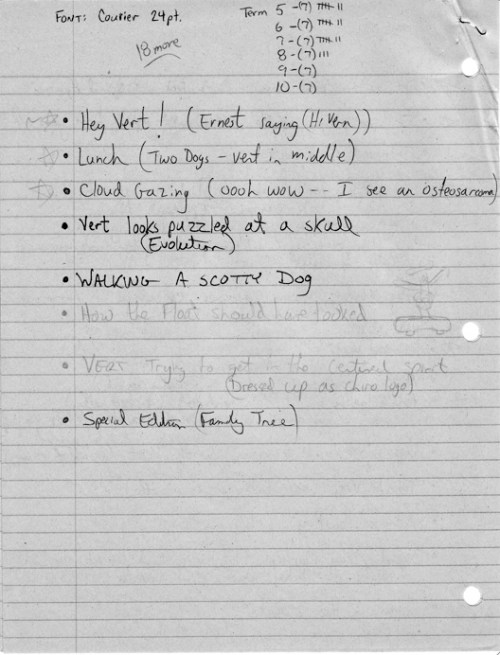 FONT: Courier 24pt.
18 more
Term 5 -(7) 卌 II
6 -(7) 卌 II
7 -(7) 卌 II
8 -(7) III
9 -(7)
10 -(7)
• Hey Vert! (Ernest saying (Hi Vern))
• Lunch (Two Dogs - vert in middle)
• Cloud Gazing (oooh wow -- I see an osteosarcoma)
• Vert looks puzzled at a skull
(Evolution)
• WALKING A SCOTTY DOG
• How the Float should have looked
• VERT Trying to get in the centennial spirit
(Dressed up as chiro logo)
• Special Edition (Family Tree)